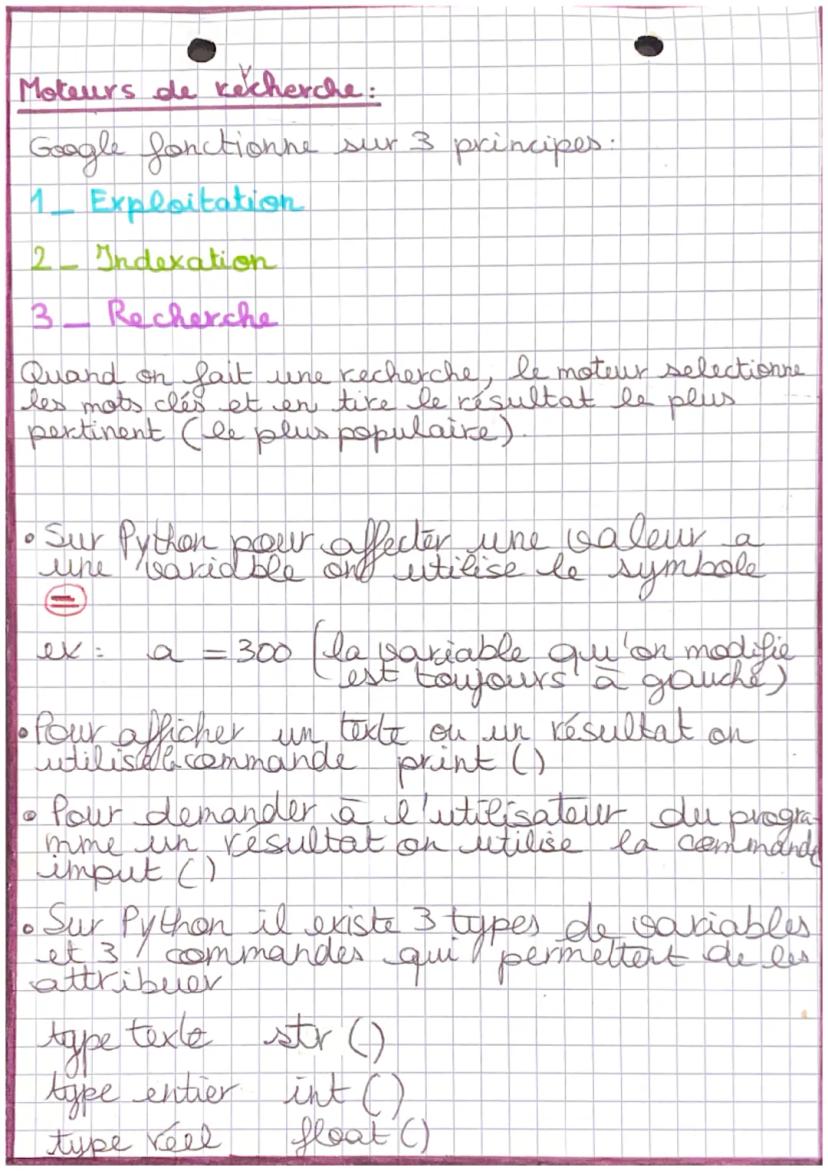 Moteurs de recherche :
Google fonctionne sur 3 principes :
1_ Exploitation
2_ Indexation
3_ Recherche
Quand on fait une recherche, le moteur selectionne
les mots clés et en tire le résultat le plus
pertinent (le plus populaire).
• Sur Python pour affecter une valeur a
une variable on utilise le symbole
=
ex : a = 300 (la variable qu'on modifie
est toujours à gauche)
• Pour afficher un texte ou un résultat on
utilise la commande print ()
• Pour demander à l'utilisateur du progra-
mme un résultat on utilise la commande
imput ()
• Sur Python il existe 3 types de variables
et 3 commandes qui permettent de les
attribuer
type texte str ()
type entier int ()
type réel float ()